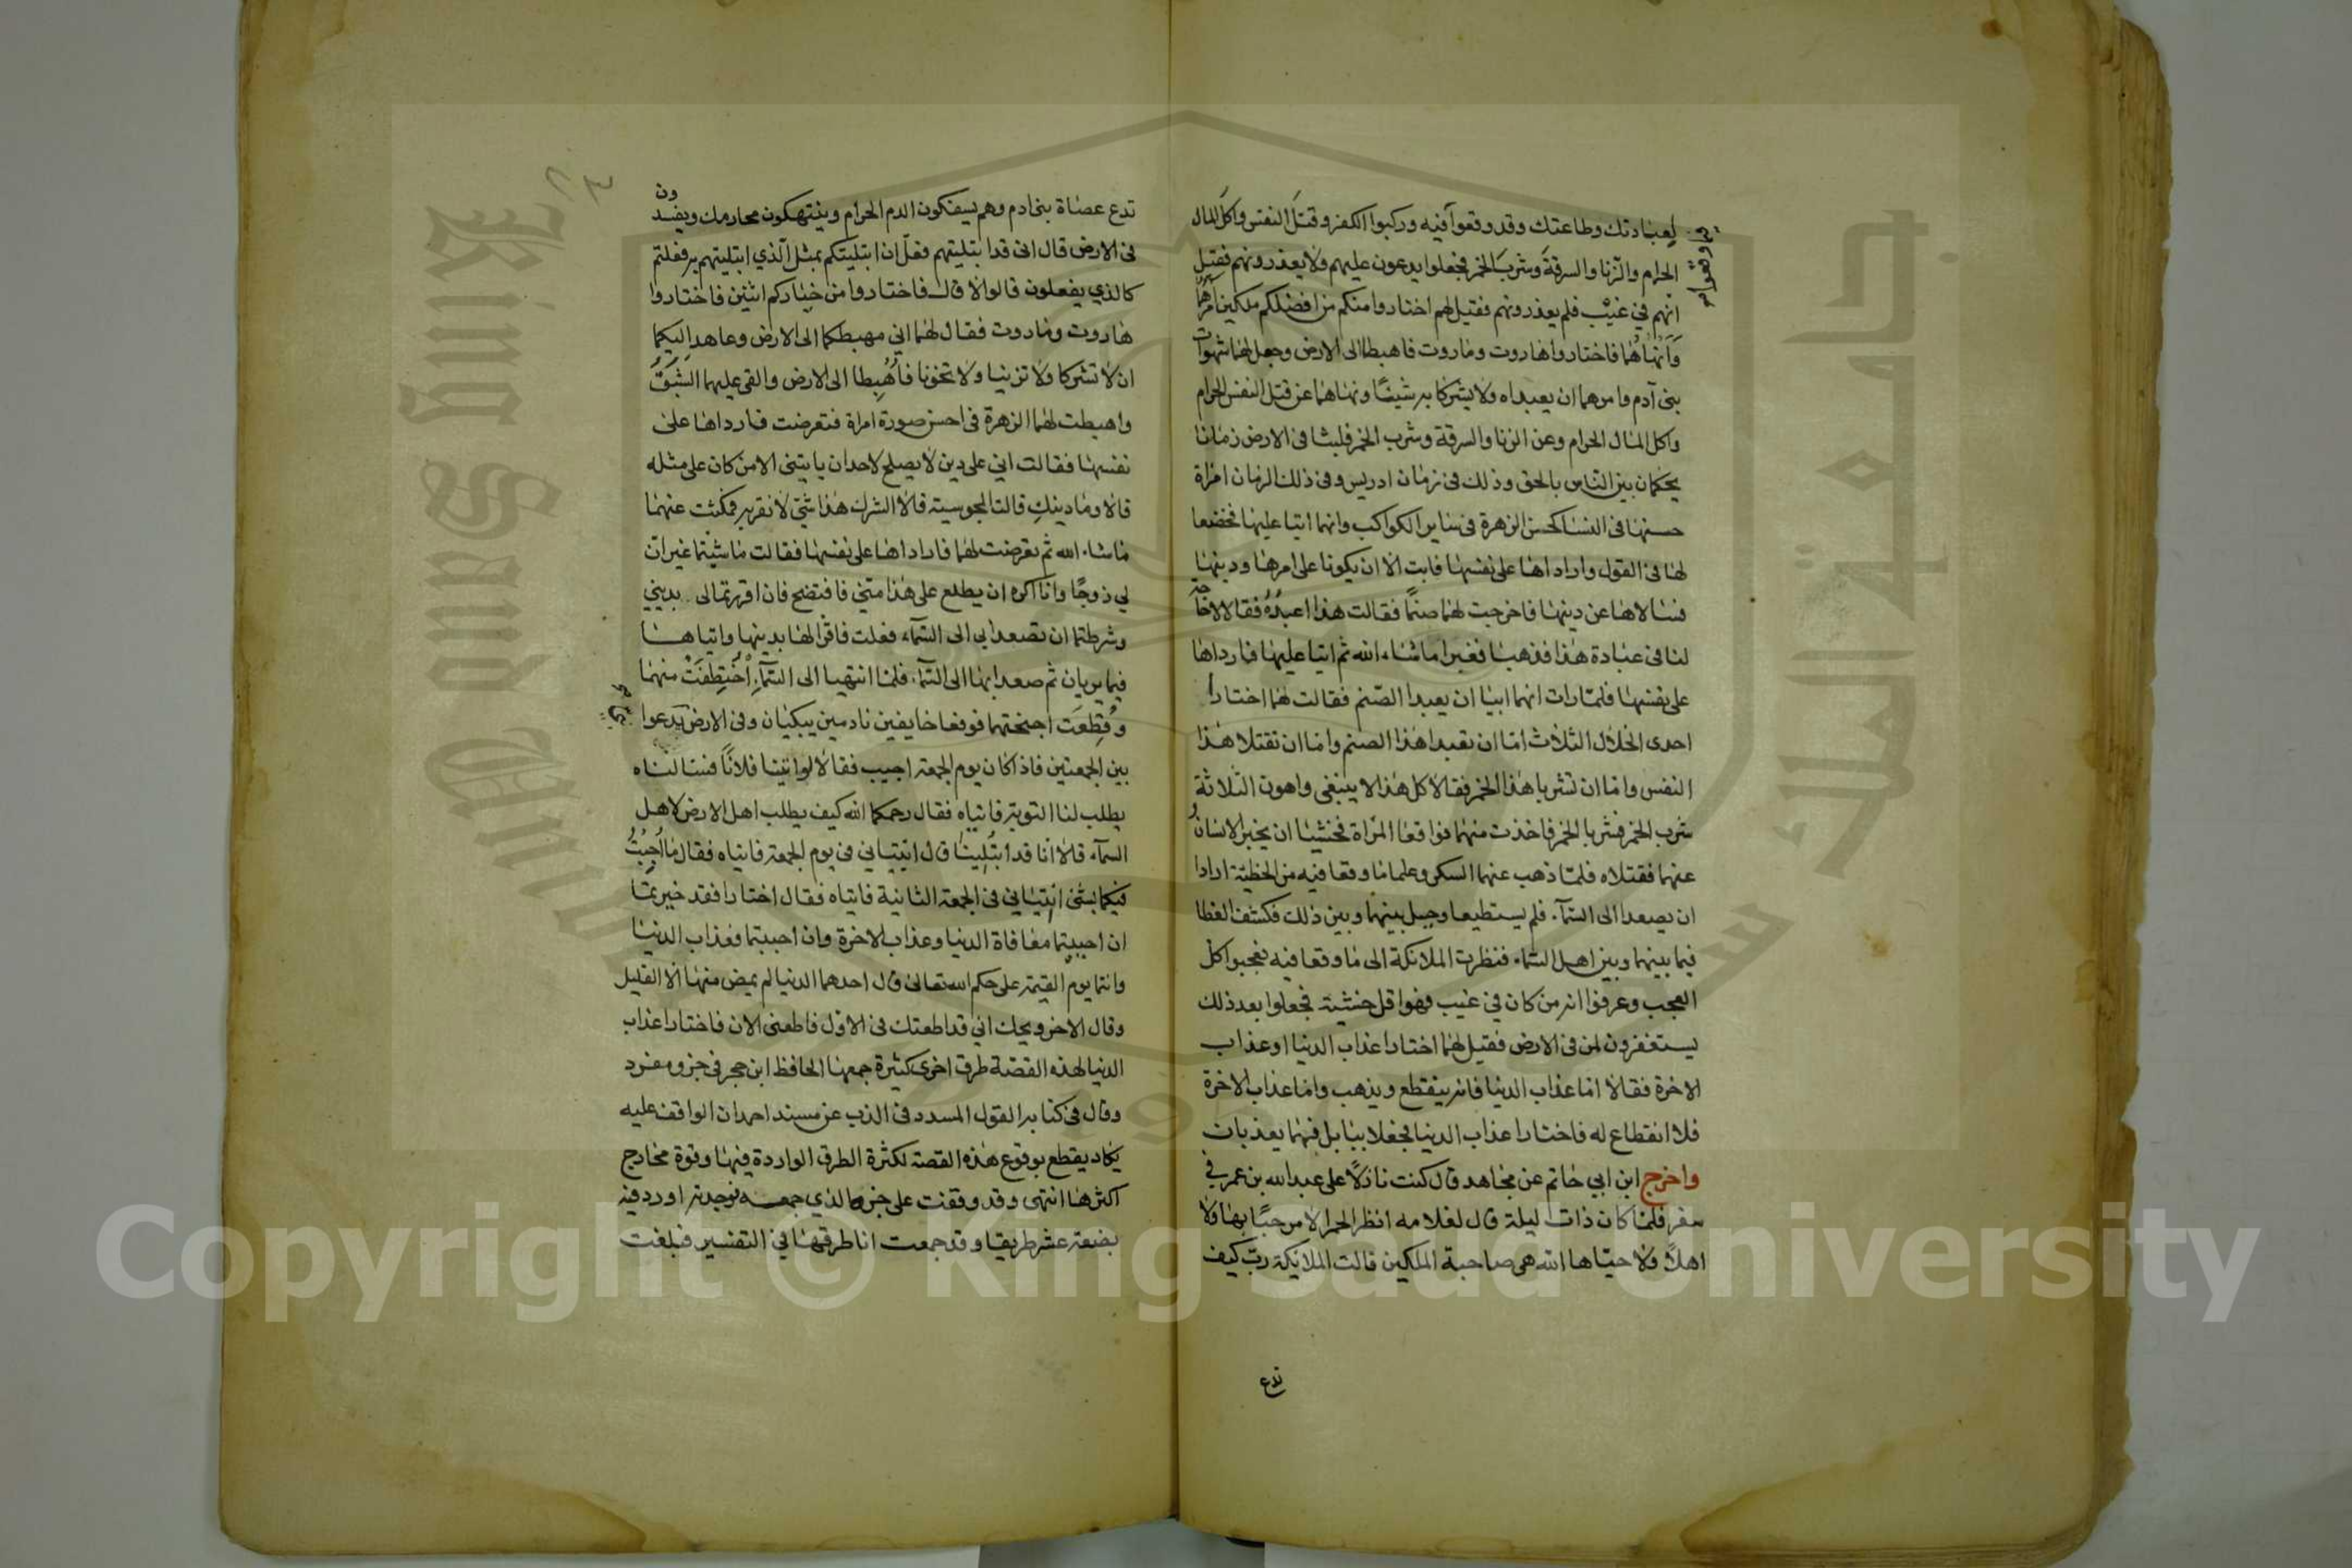 لعبادتك وطاعتك وقد وقعوا فيه وركبوا الكفر وقتل النفس واكل المال
الحرام والزنا والسرقة وشرب الخمر فجعلوا يدعون عليهم ولا يعذرونهم فقيل
انهم في غيب فلم يعذرونهم فقيل لهم اختاروا منكم من افضلكم ملكين آمرهما
وانهاهما فاختاروا هاروت وماروت فاهبطا الى الارض وجعل لهما شهوات
بنى آدم وامرهما ان يعبداه ولا يشركا به شيئا ونهاهما عن قتل النفس الحرام
واكل المال الحرام وعن الزنا والسرقة وشرب الخمر فلبثا فى الارض زمانا
يحكمان بين الناس بالحق وذلك فى زمان ادريس وفى ذلك الزمان امراة
حسنها فى النسا كحسن الزهرة فى ساير الكواكب وانهما اتيا عليها فخضعا
لها فى القول واراداها على نفسها فابت الا ان يكونا على امرها ودينها
فسالاها عن دينها فاخرجت لهما صنما فقالت هذا اعبده فقالا لا حاجة
لنا فى عبادة هذا فذهبا فغبرا ما شاء الله ثم اتيا عليها فارداها
على نفسها فلما رات انهما ابيا ان يعبدا الصنم فقالت لهما اختارا
احدى الخلال الثلاث اما ان تعبدا هذا الصنم واما ان تقتلا هذا
النفس واما ان تشربا هذا الخمر فقالا كل هذا لا ينبغى واهون الثلاثة
شرب الخمر فشربا الخمر فاخذت منهما فواقعا المراة فخشيا ان يخبر الانسان
عنهما فقتلاه فلما ذهب عنهما السكر وعلما ما وقعا فيه من الخطيئة ارادا
ان يصعدا الى السماء فلم يستطيعا وحيل بينهما وبين ذلك فكشف الغطا
فيما بينهما وبين اهل السماء فنظرت الملائكة الى ما وقعا فيه فعجبوا كل
العجب وعرفوا انه من كان في غيب فهو اقل خشية فجعلوا بعد ذلك
يستغفرون لمن فى الارض فقيل لهما اختارا عذاب الدنيا او عذاب
الاخرة فقالا اما عذاب الدنيا فانه ينقطع ويذهب واما عذاب الاخرة
فلا انقطاع له فاختارا عذاب الدنيا فجعلا ببابل فهما يعذبان
واخرج ابن ابي حاتم عن مجاهد قال كنت نازلا على عبد الله بن عمر في
سفر فلما كان ذات ليلة قال لغلامه انظر الحمرا لا مرحبا بها ولا
اهلا ولا حياها الله هى صاحبة الملكين قالت الملايكة رب كيف
تدع
تدع عصاة بنى ادم وهم يسفكون الدم الحرام وينتهكون محارمك ويفسدون
فى الارض قال انى قد ابتليتهم فعل ان ابتليتكم بمثل الذي ابتليتهم به فعلتم
كالذي يفعلون قالوا لا قال فاختاروا من خياركم اثنين فاختاروا
هاروت وماروت فقال لهما اني مهبطكما الى الارض وعاهد اليكما
ان لا تشركا ولا تزنيا ولا تخونا فاهبطا الى الارض والقى عليهما الشبق
واهبطت لهما الزهرة فى احسن صورة امراة فتعرضت فارداها على
نفسها فقالت اني على دين لا يصلح لاحد ان ياتينى الا من كان على مثله
قالا وما دينك قالت المجوسية قالا الشرك هذا شئ لا نقر به فمكثت عنهما
ما شاء الله ثم تعرضت لهما فاراداها على نفسها فقالت ما شيتما غير ان
لي زوجا وانا اكره ان يطلع على هذا منى فافتضح فان اقررتما لى بديني
وشرطتما ان تصعدا بي الى السماء فعلت فاقرا لها بدينها واتياها
فيما يريان ثم صعدا بها الى السماء فلما انتهيا الى السماء اختطفت منهما
وقطعت اجنحتهما فوقعا خايفين نادمين يبكيان وفى الارض يدعوا
بين الجمعتين فاذا كان يوم الجمعة اجيب فقالا لو اتينا فلانا فسالناه
يطلب لنا التوبة فاتياه فقال رحمكما الله كيف يطلب اهل الارض لاهل
السماء قالا انا قد ابتلينا قال ايتياني في يوم الجمعة فاتياه فقال ما اجبت
فيكما بشئ ايتياني فى الجمعة الثانية فاتياه فقال اختارا فقد خيرتما
ان احببتما معافاة الدنيا وعذاب الاخرة وان احببتما فعذاب الدنيا
وانتما يوم القيمة على حكم الله تعالى قال احدهما الدنيا لم يمض منها الا القليل
وقال الاخر ويحك اني قد اطعتك فى الاول فاطعنى الان فاختارا عذاب
الدنيا لهذه القصة طرق اخرى كثيرة جمعها الحافظ ابن حجر في جزو مفرد
وقال فى كتابه القول المسدد فى الذب عن مسند احمد ان الواقف عليه
يكاد يقطع بوقوع هذه القصة لكثرة الطرق الواردة فيها وقوة مخارج
اكثرها انتهى وقد وقفت على جزءه الذي جمعه فوجدته اورد فيه
بضعة عشر طريقا وقد جمعت انا طرقها في التفسير فبلغت
King Saud University
جامعة الملك سعود
1957
Copyright © King Saud University